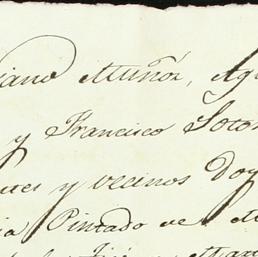 iano Muñoz, Agu
y Francisco Soto
ues y vecinos Doy
ia Pintado de M